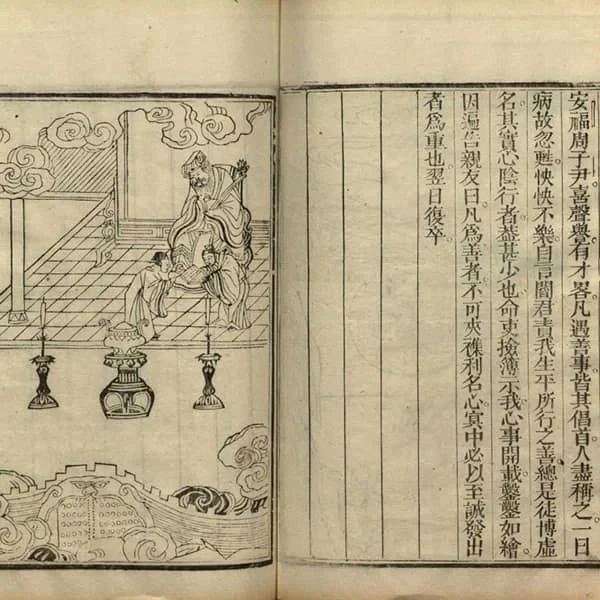 安福周子尹喜聲譽有才畧凡遇善事皆其倡首人盡稱之一日
病故忽甦怏怏不樂自言閻君責我生平所行之善總是徒博虛
名其實心陰行者葢甚少也命吏撿簿示我心事開載鑿鑿如繪
因遍告親友曰凡爲善者不可夾襍利名心冥中必以至誠發出
者爲重也翌日復卒